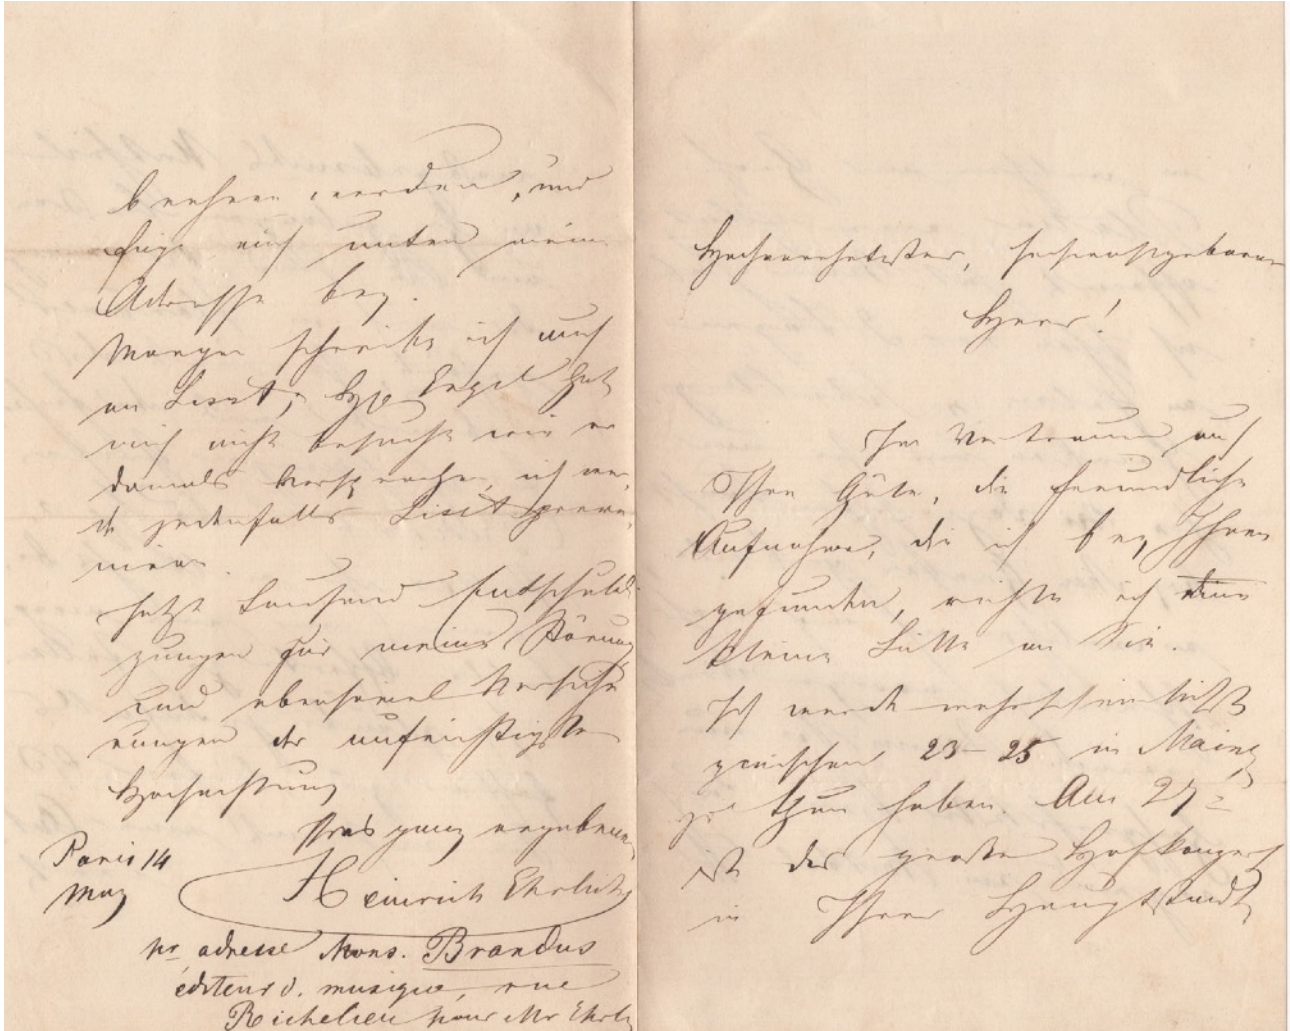 beehren werden, und
füge auch unten meine
Adresse bey.
Morgen schreibe ich auch
an Liszt; Engel hat
mich nicht besucht wie er
damals versprochen, ich wer-
de jedenfalls Liszt preve-
niren.
Jetzt tausend Entschuldi-
gungen für meine Störung
und ebensoviel Versiche-
rungen der aufrichtigsten
Hochachtung
Ihres ganz ergebenen
Paris 14
May
Heinrich Ehrlich
pr adresse Mons. Brandus
éditeur d. musique, rue
Richelieu pour Mr Ehrl
Hochverehrtester, hochwohlgeborener
Herr!
Im Vertrauen auf
Ihre Güte, die freundliche
Aufnahme, die ich bey Ihnen
gefunden, richte ich eine
kleine Bitte an Sie.
Ich werde wahrscheinlichst
zwischen 23-25 in Mainz
zu thun haben. Am 27
ist das grosse Hofkonzert
in Ihrer Hauptstadt,